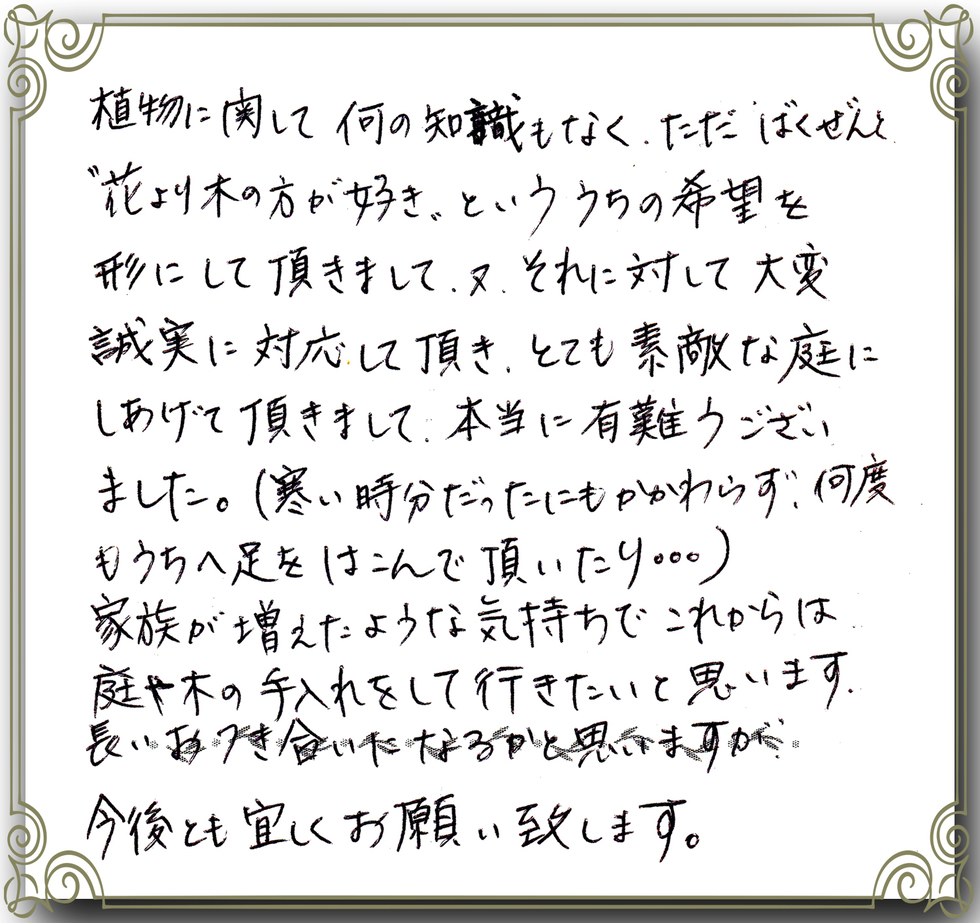 植物に関して 何の知識もなく、ただ ばくぜんと
〝花より木の方が好き〟というううちの希望を
形にして頂きまして、又、それに対して大変
誠実に対応して頂き、とても素敵な庭に
しあげて頂きまして、本当に有難うござい
ました。(寒い時分だったにもかかわらず、何度
もうちへ足をはこんで頂いたり…)
家族が増えたような気持ちでこれからは
庭や木の手入れをして行きたいと思います。
長いおつき合いになるかと思いますが、
今後とも宜しくお願い致します。